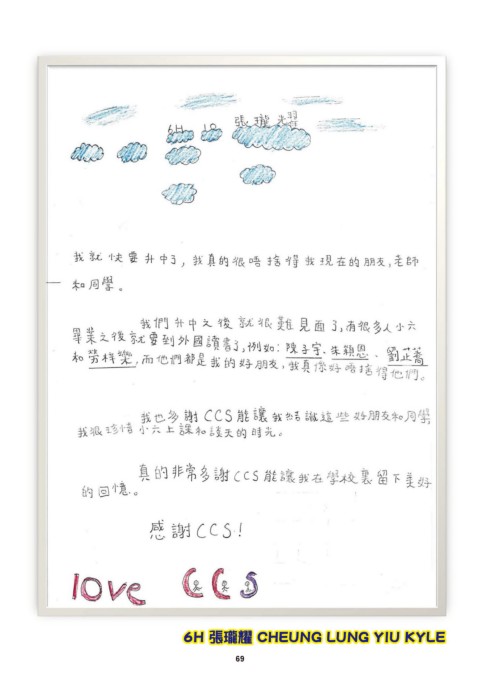 6H 10 張瓏耀
我就快要升中了，我真的很唔捨得我現在的朋友,老師
和同學。
我們升中之後就很難見面了,有很多人小六
畢業之後就要到外國讀書了,例如:陳子宇、朱穎恩、劉芷蕎
和勞梓樂,而他們都是我的好朋友,我真係好唔捨得他們。
我也多謝CCS能讓我結識這些好朋友和同學
我很珍惜小六上課和談天的時光。
真的非常多謝CCS能讓我在學校裏留下美好
的回憶。
感謝CCS!
love CCS
6H 張瓏耀 CHEUNG LUNG YIU KYLE
69